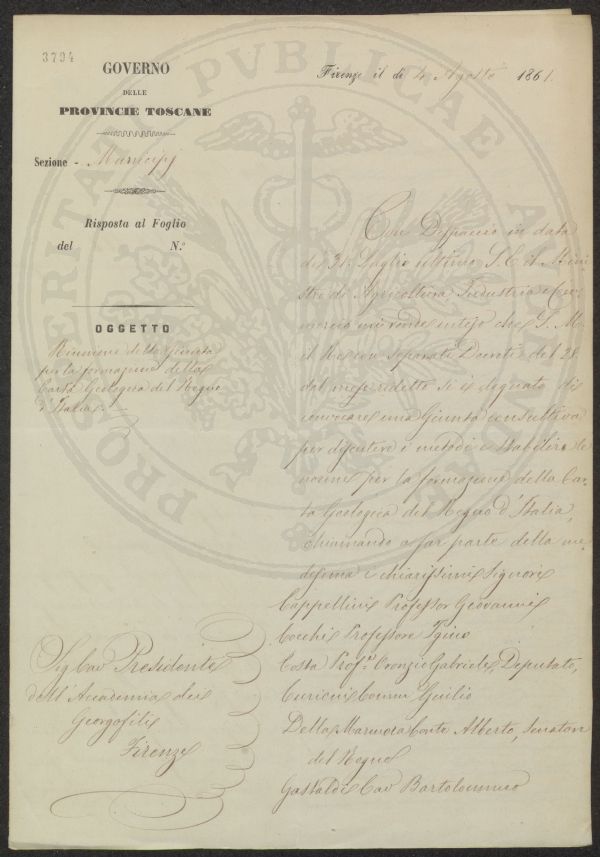 3794
GOVERNO
DELLE
PROVINCIE TOSCANE
Sezione - Municipj
Risposta al Foglio
del N.°
OGGETTO
Riunione della Giunta
per la formazione della
Carta Geologica del Regno
d'Italia.
Firenze il di 4 Agosto 1861.
Con Dispaccio in data
del 31. Luglio ultimo S. E. il Mini
stro di Agricoltura Industria e Com
mercio mi rende inteso che S. M.
il Re con separato Decreto del 28.
dal mese si è degnato di
convocare una Giunta consultiva
per discutere i metodi e stabilire le
norme per la formazione della Car
ta Geologica del Regno d'Italia,
chiamando a far parte della me
desima i chiarissimi Signori
Cappellini Professor Giovanni
Cocchi Professore Igino
Costa Prof.e Oronzio Gabriele, Deputato,
Curioni Giulio
Della Marmora Conte Alberto, Senatore
del Regno
Gastaldi Cav Bartolommeo
Sig Cav Presidente
dell'Accademia dei
Georgofili
Firenze
PROSPERITATI PUBLICAE AUGENDAE